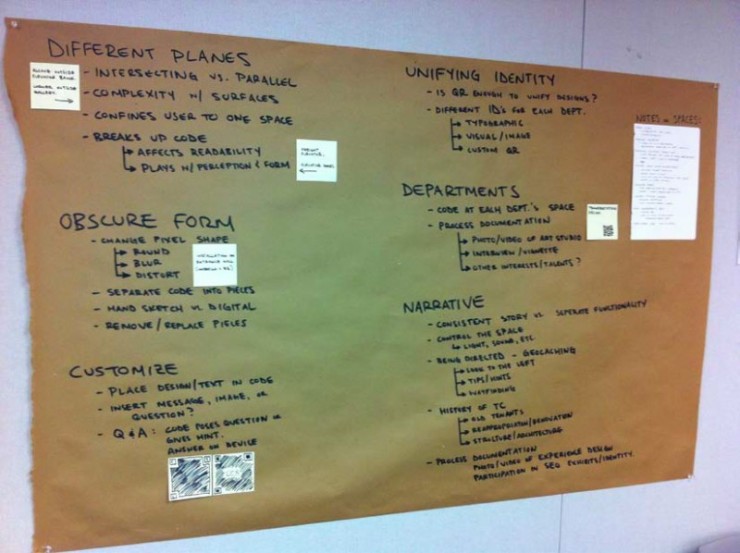 DIFFERENT PLANES
- INTERSECTING VS. PARALLEL
- COMPLEXITY W/ SURFACES
- CONFINES USER TO ONE SPACE
- BREAKS UP CODE
↳ AFFECTS READABILITY
↳ PLAYS W/ PERCEPTION & FORM
OBSCURE FORM
- CHANGE PIXEL SHAPE
↳ ROUND
↳ BLUR
↳ DISTORT
- SEPARATE CODE INTO PIECES
- HAND SKETCH VS. DIGITAL
- REMOVE/REPLACE PIECES
CUSTOMIZE
- PLACE DESIGN/TEXT IN CODE
- INSERT MESSAGE, IMAGE, OR
QUESTION?
- Q & A: CODE POSES QUESTION OR
GIVES HINT.
ANSWER ON DEVICE
UNIFYING IDENTITY
- IS QR ENOUGH TO UNIFY DESIGNS?
- DIFFERENT ID's FOR EACH DEPT.
↳ TYPOGRAPHIC
↳ VISUAL/IMAGE
↳ CUSTOM QR
NOTES SPACES:
DEPARTMENTS
- CODE AT EACH DEPT.'S SPACE
- PROCESS DOCUMENTATION
↳ PHOTO/VIDEO OF ART STUDIO
↳ INTERVIEW/VIGNETTE
↳ OTHER INTERESTS/TALENTS?
NARRATIVE
- CONSISTENT STORY VS. SEPERATE FUNCTIONALITY
- CONTROL THE SPACE
↳ LIGHT, SOUND, ETC.
- BEING DIRECTED - GEOCACHING
↳ LOOK TO THE LEFT
↳ TIPS/HINTS
↳ WAYFINDING
- HISTORY OF TC
↳ OLD TENANTS
↳ STRUCTURE/ARCHITECTURE
- PROCESS DOCUMENTATION
PHOTO/VIDEO OF EXPERIENCE DESIGN
PARTICIPATION IN SEG EXHIBITS/IDENTITY